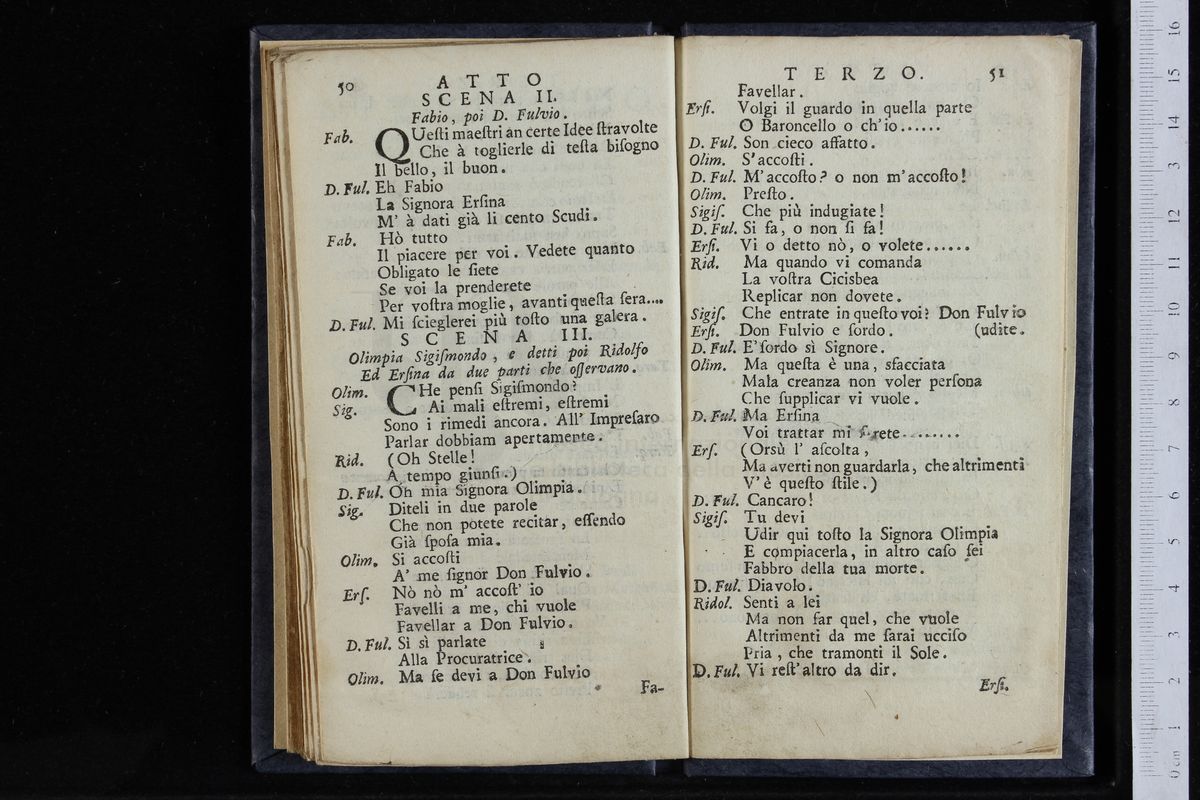 50
ATTO
SCENA II.
Fabio, poi D. Fulvio.
Fab. QUeſti maeſtri an certe Idee ſtravolte
Che à toglierle di teſta biſogno
Il bello, il buon.
D. Ful. Eh Fabio
La Signora Erſina
M' à dati già li cento Scudi.
Fab. Hò tutto
Il piacere per voi. Vedete quanto
Obligato le ſiete
Se voi la prenderete
Per voſtra moglie, avanti queſta ſera....
D. Ful. Mi ſcieglerei più toſto una galera.
SCENA III.
Olimpia Sigiſmondo, e detti poi Ridolfo
Ed Erſina da due parti che oſſervano.
Olim. CHe penſi Sigiſmondo?
Sig. Ai mali eſtremi, eſtremi
Sono i rimedi ancora. All' Impreſaro
Parlar dobbiam apertamente.
Rid. (Oh Stelle!
A tempo giunſi.)
D. Ful. Oh mia Signora Olimpia.
Sig. Diteli in due parole
Che non potete recitar, eſſendo
Già ſpoſa mia.
Olim. Si accoſti
A' me ſignor Don Fulvio.
Erſ. Nò nò m' accoſt' io
Favelli a me, chi vuole
Favellar a Don Fulvio.
D. Ful. Sì sì parlate
Alla Procuratrice.
Olim. Ma ſe devi a Don Fulvio
Fa-
TERZO. 51
Favellar.
Erſi. Volgi il guardo in quella parte
O Baroncello o ch'io......
D. Ful. Son cieco affatto.
Olim. S'accoſti.
D. Ful. M'accoſto? o non m'accoſto!
Olim. Preſto.
Sigiſ. Che più indugiate!
D. Ful. Si fa, o non ſi fa!
Erſi. Vi o detto nò, o volete......
Rid. Ma quando vi comanda
La voſtra Cicisbea
Replicar non dovete.
Sigiſ. Che entrate in queſto voi? Don Fulvio
Erſi. Don Fulvio e ſordo. (udite.
D. Ful. E' ſordo sì Signore.
Olim. Ma queſta è una, sfacciata
Mala creanza non voler perſona
Che ſupplicar vi vuole.
D. Ful. Ma Erſina
Voi trattar mi farete........
Erſ. (Orsù l' aſcolta,
Ma averti non guardarla, che altrimenti
V' è queſto ſtile.)
D. Ful. Cancaro!
Sigiſ. Tu devi
Udir qui toſto la Signora Olimpia
E compiacerla, in altro caſo ſei
Fabbro della tua morte.
D. Ful. Diavolo.
Ridol. Senti a lei
Ma non far quel, che vuole
Altrimenti da me ſarai ucciſo
Pria, che tramonti il Sole.
D. Ful. Vi reſt' altro da dir.
Erſi.
0 cm 1 2 3 4 5 6 7 8 9 10 11 12 13 14 15 16